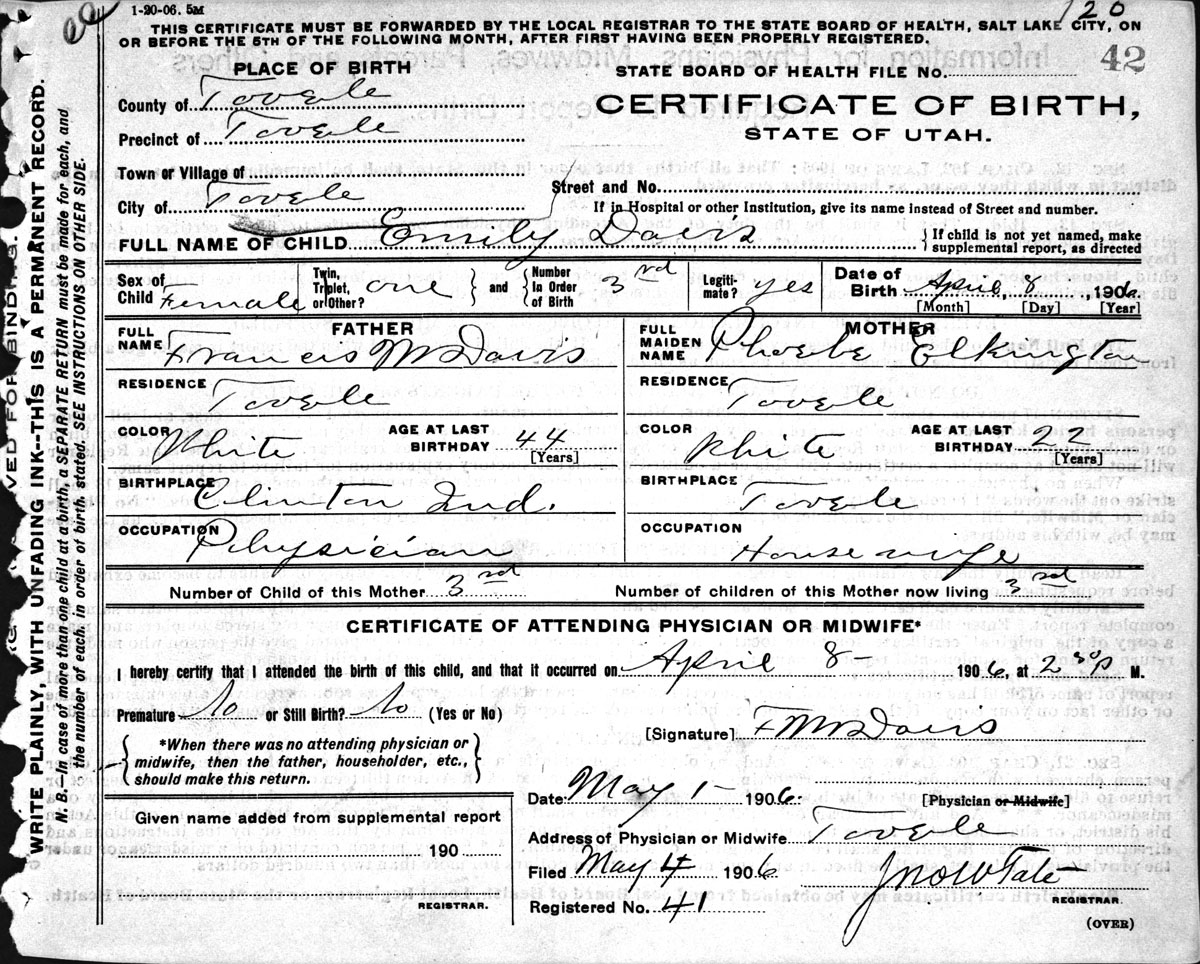 1-20-06. 5M
120
THIS CERTIFICATE MUST BE FORWARDED BY THE LOCAL REGISTRAR TO THE STATE BOARD OF HEALTH, SALT LAKE CITY, ON
OR BEFORE THE 5TH OF THE FOLLOWING MONTH, AFTER FIRST HAVING BEEN PROPERLY REGISTERED.
42
PLACE OF BIRTH
STATE BOARD OF HEALTH FILE No.
County of Tooele
CERTIFICATE OF BIRTH,
Precinct of Tooele
STATE OF UTAH.
Town or Village of
Street and No.
City of Tooele
If in Hospital or other Institution, give its name instead of Street and number.
FULL NAME OF CHILD Emily Davis { If child is not yet named, make supplemental report, as directed
Sex of Child Female
Twin, Triplet, or Other? one } and { Number In Order of Birth 3rd
Legiti-mate? yes
Date of Birth April 8, 1906
[Month] [Day] [Year]
FATHER
FULL NAME Francis M Davis
MOTHER
FULL MAIDEN NAME Phoebe Elkington
RESIDENCE Tooele
RESIDENCE Tooele
COLOR White AGE AT LAST BIRTHDAY 44 [Years]
COLOR White AGE AT LAST BIRTHDAY 22 [Years]
BIRTHPLACE Clinton Ind.
BIRTHPLACE Tooele
OCCUPATION Physician
OCCUPATION Housewife
Number of Child of this Mother 3rd
Number of children of this Mother now living 3rd
CERTIFICATE OF ATTENDING PHYSICIAN OR MIDWIFE*
I hereby certify that I attended the birth of this child, and that it occurred on April 8- 1906, at 2 30 P M.
Premature No or Still Birth? No (Yes or No)
[Signature] F M Davis
{ *When there was no attending physician or
midwife, then the father, householder, etc.,
should make this return. }
Date May 1- 1906.
[Physician or Midwife]
Given name added from supplemental report
190
REGISTRAR.
Address of Physician or Midwife Tooele
Filed May 4 1906
Jno W Tate
REGISTRAR.
Registered No. 41
(OVER)
VED FOR BINDING.
WRITE PLAINLY, WITH UNFADING INK--THIS IS A PERMANENT RECORD.
N. B.—In case of more than one child at a birth, a SEPARATE RETURN must be made for each, and
the number of each, in order of birth, stated. SEE INSTRUCTIONS ON OTHER SIDE.